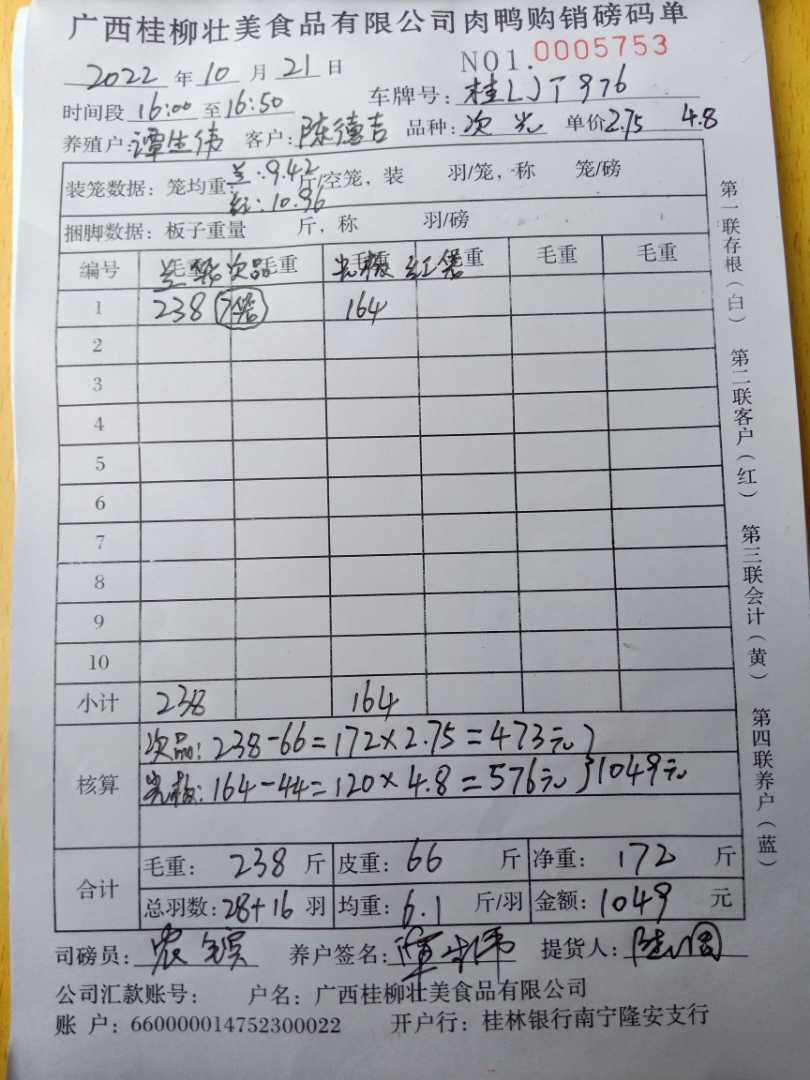 广西桂柳壮美食品有限公司肉鸭购销磅码单
NO1. 0005753
2022 年 10 月 21 日
时间段 16:00 至 16:50 车牌号: 桂LJT976
养殖户: 谭生伟 客户: 陈德吉 品种: 次 光 单价 2.75 4.8
装笼数据: 笼均重: 兰:9.42 斤/空笼, 装 羽/笼, 称 笼/磅
红:10.96
捆脚数据: 板子重量 斤, 称 羽/磅
编号 毛重 毛重 毛重 毛重 毛重 毛重
次品 红
1 238 164
2
3
4
5
6
7
8
9
10
小计 238 164
核算
次品: 238-66=172×2.75=473元
164-44=120×4.8=576元 } 1049元
合计 毛重: 238 斤 皮重: 66 斤 净重: 172 斤
总羽数: 28+16 羽 均重: 6.1 斤/羽 金额: 1049 元
司磅员: 农 养户签名: 谭生伟 提货人:
公司汇款账号: 户名: 广西桂柳壮美食品有限公司
账 户: 660000014752300022 开户行: 桂林银行南宁隆安支行
第一联存根(白) 第二联客户(红) 第三联会计(黄) 第四联养户(蓝)